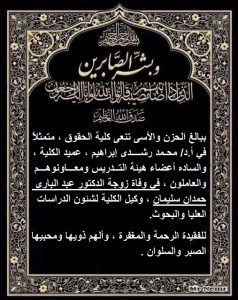 بسم الله الرحمن الرحيم
وبشر الصابرين
الذين إذا أصابتهم مصيبة قالوا إنا لله وإنا إليه راجعون
صدق الله العظيم
ببالغ الحزن والأسى تنعى كلية الحقوق ، متمثلاً
في أ.د/ محمد رشدى إبراهيم ، عميد الكلية ،
والساده أعضاء هيئة التدريس ومعاونوهم
والعاملون ، في وفاة زوجة الدكتور عبد البارى
حمدان سليمان ، وكيل الكلية لشئون الدراسات
العليا والبحوث.
للفقيدة الرحمة والمغفرة ، وألهم ذويها ومحبيها
الصبر والسلوان .